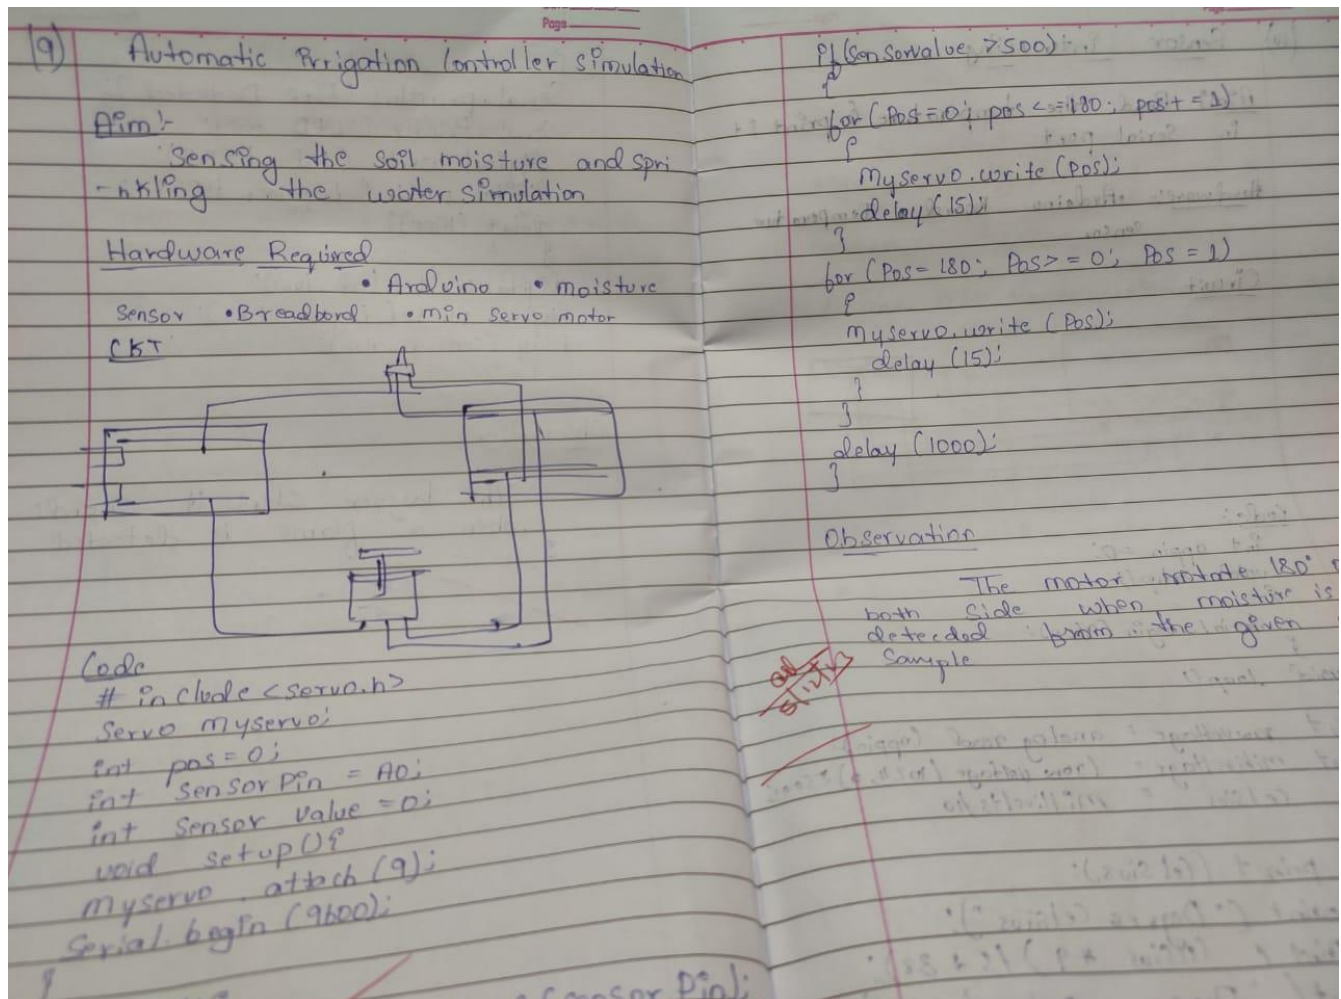 Page
19) Automatic Irrigation Controller simulation
Aim:-
Sensing the soil moisture and spri
-nkling the water simulation
Hardware Required
• Arduino • moisture
Sensor • Breadbord • min servo motor
CKT
Code
# include <servo.h>
Servo myservo;
int pos = 0;
int Sensor Pin = A0;
int Sensor value = 0;
void setup(){
myservo . attach (9);
Serial. begin (9600);
}
Sensor Pin);
if (Sensorvalue > 500)
{
for (Pos = 0; pos <= 180; pos + = 1)
{
myservo.write (pos);
delay (15);
}
for (Pos = 180; Pos > = 0; Pos = 1)
{
myservo.write (Pos);
delay (15);
}
}
delay (1000);
}
Observation
The motor rotate 180°
both side when moisture is
detecded from the given
Sample